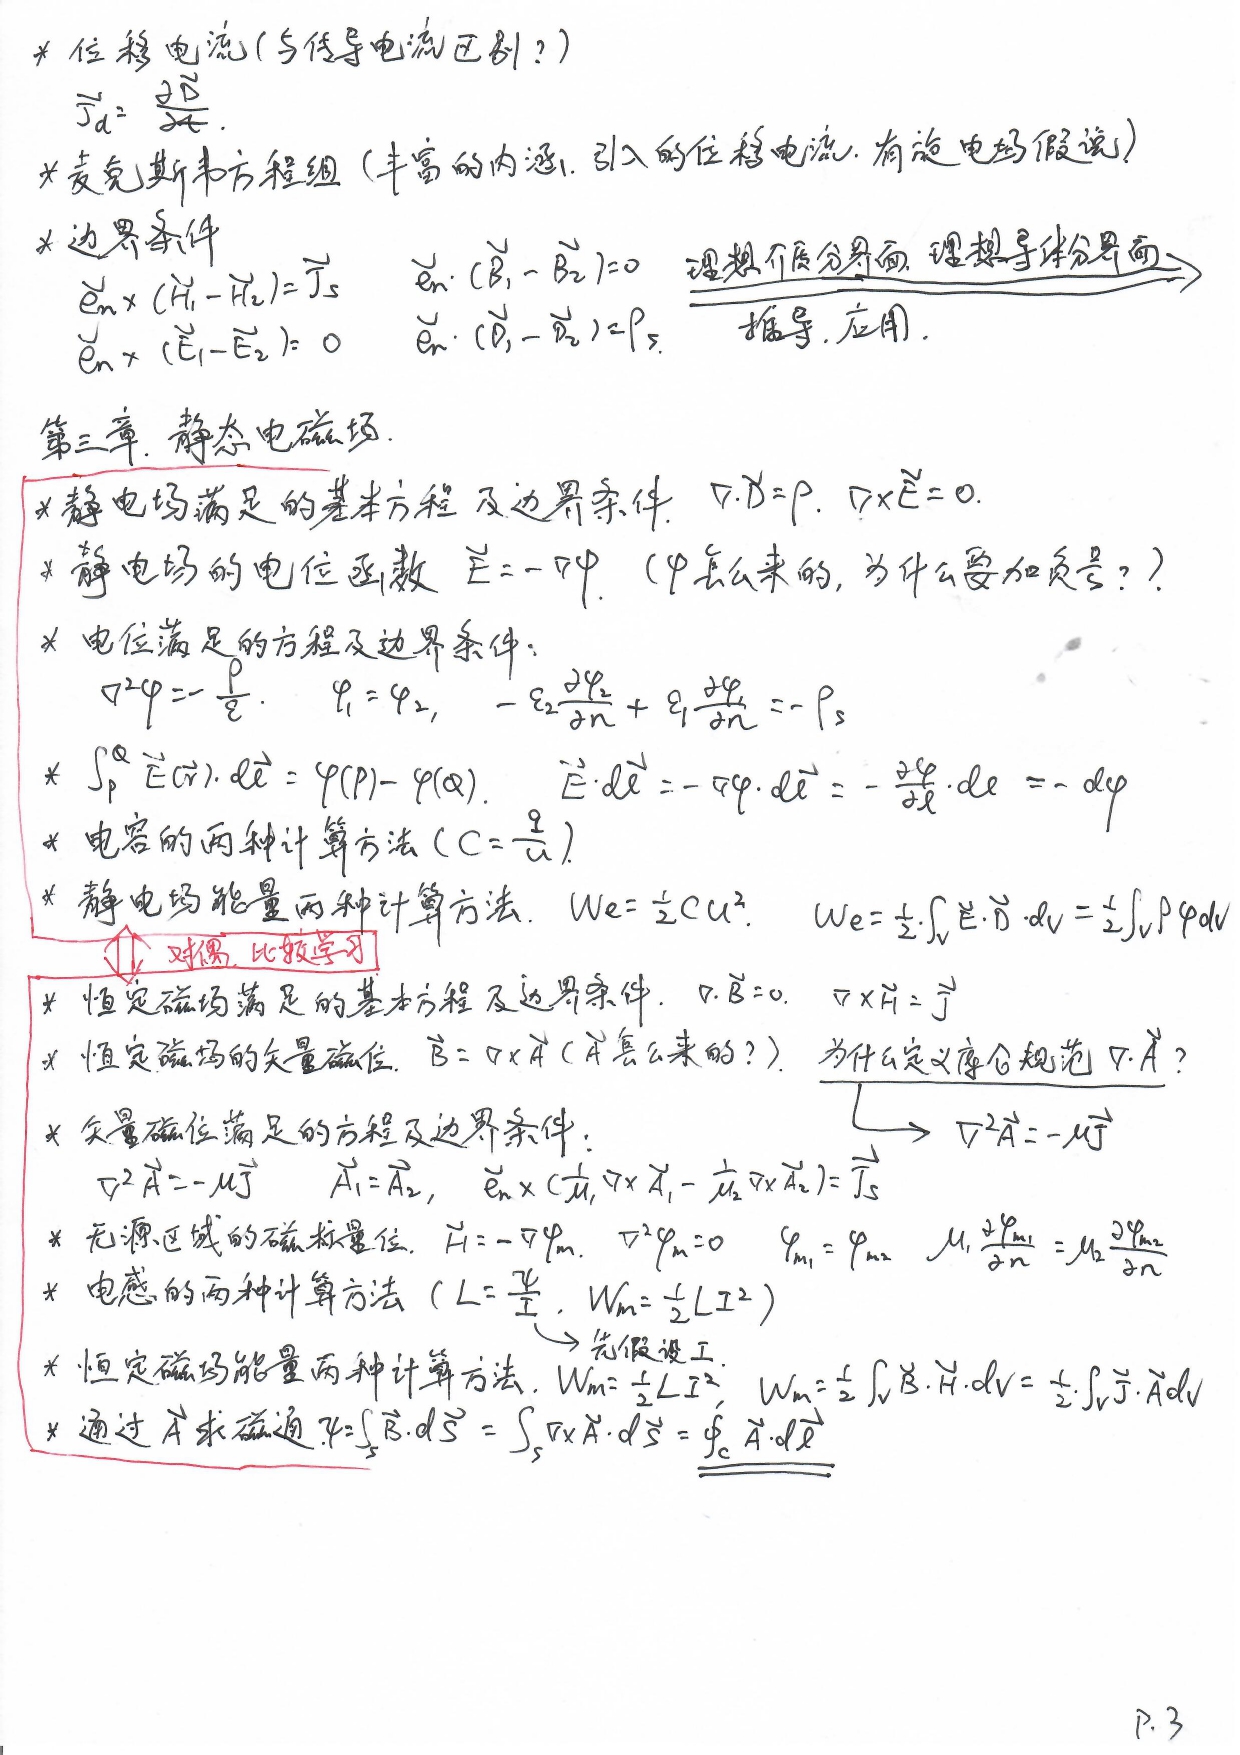 * 位移电流(与传导电流区别?)
J⃗d = ∂D⃗/∂t.
* 麦克斯韦方程组 (丰富的内涵, 引入的位移电流. 有旋电场假说)
* 边界条件
e⃗n × (H⃗1 - H⃗2) = J⃗s    e⃗n · (B⃗1 - B⃗2) = 0    理想介质分界面, 理想导体分界面
e⃗n × (E⃗1 - E⃗2) = 0    e⃗n · (D⃗1 - D⃗2) = ρs.    推导. 应用.
第三章. 静态电磁场.
* 静电场满足的基本方程及边界条件. ∇·D⃗ = ρ. ∇×E⃗ = 0.
* 静电场的电位函数 E⃗ = -∇φ. (φ怎么来的, 为什么要加负号?)
* 电位满足的方程及边界条件:
∇²φ = -ρ/ε.    φ1 = φ2,    -ε2 ∂φ2/∂n + ε1 ∂φ1/∂n = -ρs
* ∫_P^Q E⃗(r⃗)·dl⃗ = φ(P) - φ(Q).    E⃗·dl⃗ = -∇φ·dl⃗ = -∂φ/∂l · dl = -dφ
* 电容的两种计算方法 (C = q/u).
* 静电场能量两种计算方法. We = ½CU².    We = ½·∫v E⃗·D⃗·dv = ½∫v ρφdv
对偶, 比较学习
* 恒定磁场满足的基本方程及边界条件. ∇·B⃗ = 0. ∇×H⃗ = J⃗
* 恒定磁场的矢量磁位. B⃗ = ∇×A⃗ (A⃗怎么来的?). 为什么定义库仑规范 ∇·A⃗?
* 矢量磁位满足的方程及边界条件:    → ∇²A⃗ = -μJ⃗
∇²A⃗ = -μJ⃗    A⃗1 = A⃗2,    e⃗n × (1/μ1 ∇×A⃗1 - 1/μ2 ∇×A⃗2) = J⃗s
* 无源区域的磁标量位. H⃗ = -∇φm. ∇²φm = 0    φm1 = φm2    μ1 ∂φm1/∂n = μ2 ∂φm2/∂n
* 电感的两种计算方法 (L = Ψ/I. Wm = ½LI²)
→ 先假设I.
* 恒定磁场能量两种计算方法. Wm = ½LI², Wm = ½∫v B⃗·H⃗·dv = ½·∫v J⃗·A⃗dv
* 通过A⃗求磁通 Ψ = ∫s B⃗·dS⃗ = ∫s ∇×A⃗·dS⃗ = ∮c A⃗·dl⃗
P.3